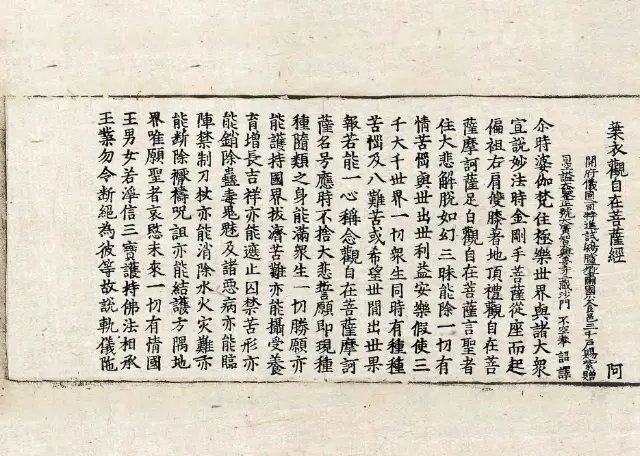 葉衣觀自在菩薩經 阿
開府儀同三司特進試鴻臚卿肅國公食邑三千戶賜紫贈
司空謚大鑒正號大廣智大興善寺三藏沙門 不空奉 詔譯
尒時婆伽梵住極樂世界與諸大衆
宣說妙法時金剛手菩薩從座而起
偏袒右肩雙膝著地頂禮觀自在菩
薩摩訶薩足白觀自在菩薩言聖者
住大悲解脫如幻三昧能除一切有
情苦惱與世出世利益安樂假使三
千大千世界一切衆生同時有種種
苦惱及八難苦或希望世間出世果
報若能一心稱念觀自在菩薩摩訶
薩名号應時不捨大悲誓願即現種
種隨類之身能滿衆生一切勝願亦
能護持國界拔濟苦難亦能攝受養
育增長吉祥亦能遮止囚禁苦形亦
能銷除蠱毒鬼魅及諸惡病亦能臨
陣禁制刀杖亦能消除水火灾難亦
能斷除禱呪詛亦能結護方隅地
界唯願聖者哀愍未來一切有情國
王男女若淨信三寶護持佛法相承
王業勿令斷絕為彼等故說軌儀陁